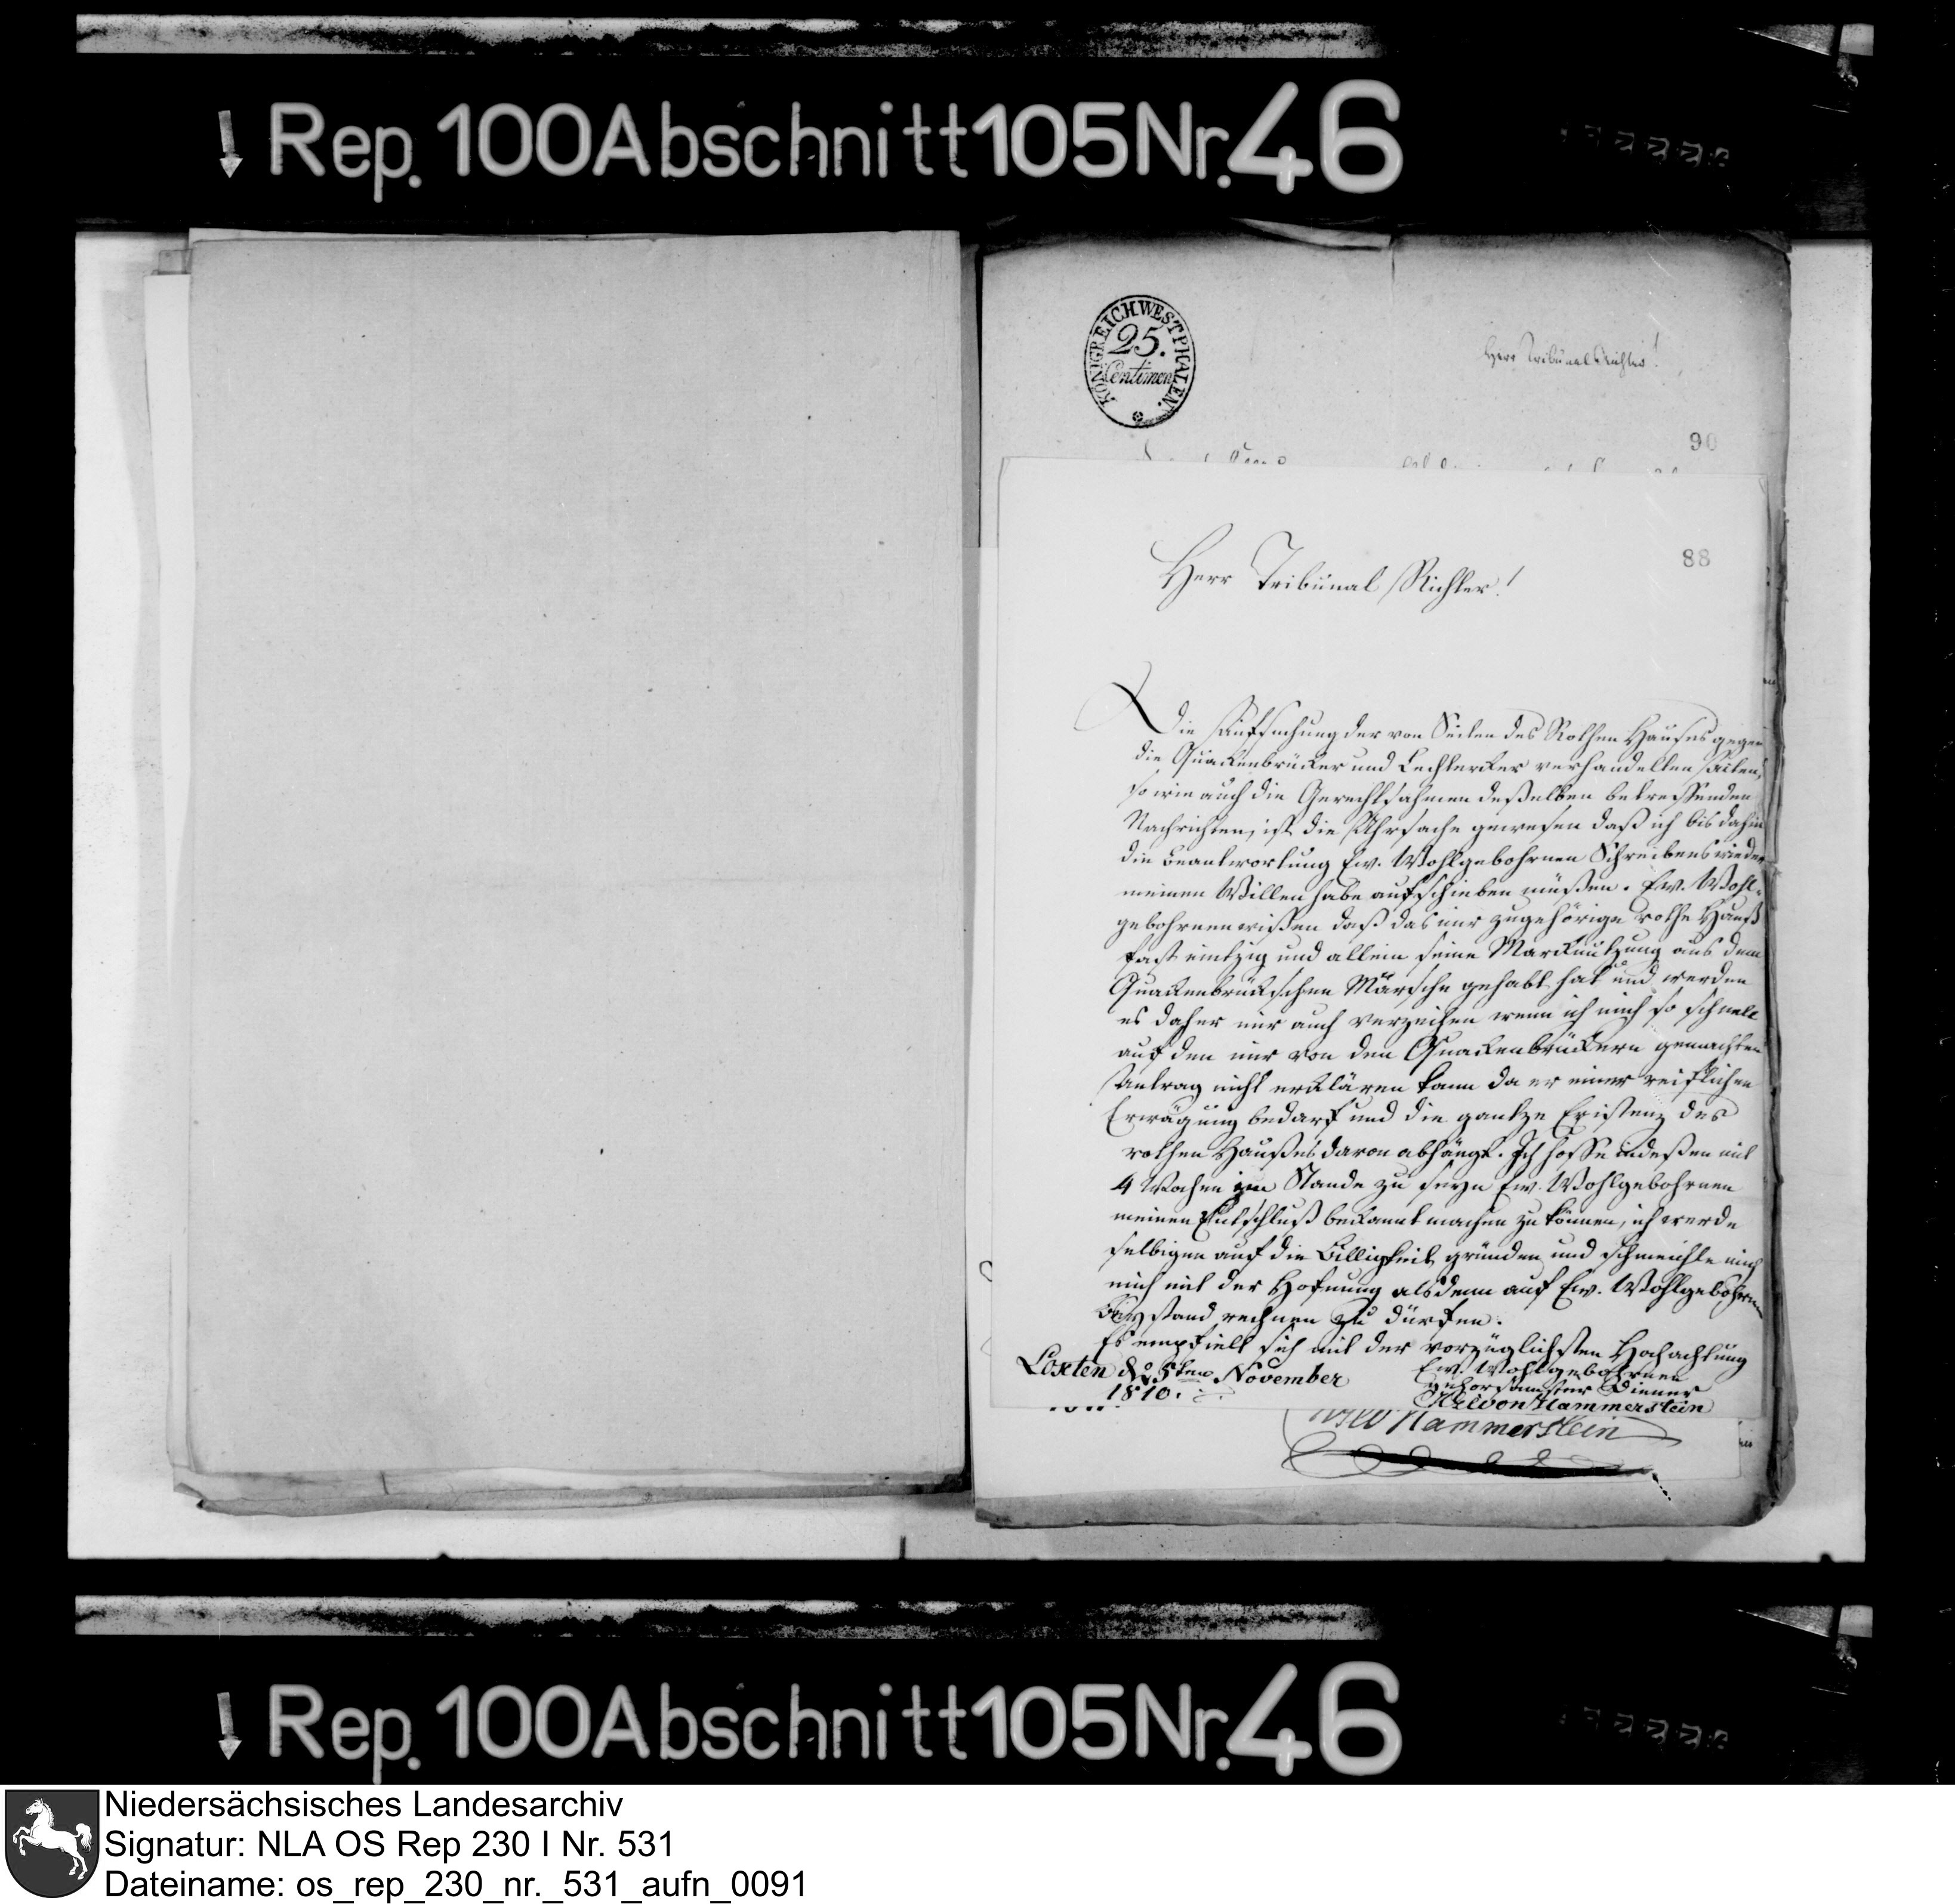 Rep. 100 Abschnitt 105 Nr. 46
KÖNIGREICH WESTPHALEN.
25.
Centimen
Herr Tribunal Richter!
90
88
Herr Tribunal Richter!
Die Aufsuchung der von Seiten des Rothen Hauses gegen
die Quackenbrücker und Lechtercker verhandelten Acten,
so wie auch die Gerechtsahmen deßelben betreffenden
Nachrichten, ist die Uhrsache gewesen daß ich bis dahin
die Beantwortung Ew. Wohlgebohrnen Schreibens wieder
meinen Willen habe aufschieben müßen. Ew. Wohl-
gebohrnen wißen daß das mir zugehörige rothe Hauß
fast eintzig und allein seine Marcknutzung aus dem
Quackenbrückschen Märsche gehabt hat und werden
es daher mir auch verzeihen wenn ich mich so schnell
auf den mir von den Quackenbrückern gemachten
Antrag nicht erklären kann da er einer reiflichen
Erwägung bedarf und die gantze Existenz des
rothen Haußes davon abhängt. Ich hoffe indeßen mit
4 Wochen im Stande zu seyn Ew. Wohlgebohrnen
meinen Entschluß bekannt machen zu können, ich werde
selbigen auf die Billigkeit gründen und schmeichle mich
mich mit der Hofnung alsdenn auf Ew. Wohlgebohrnen
Beystand rechnen zu dürfen.
Es empfielt sich mit der vorzüglichsten Hochachtung
Loxten d 5ten November
1810.
Ew. Wohlgebohrnen
gehorsamster Diener
von Hammerstein
Hammerstein
Rep. 100 Abschnitt 105 Nr. 46
Niedersächsisches Landesarchiv
Signatur: NLA OS Rep 230 I Nr. 531
Dateiname: os_rep_230_nr._531_aufn_0091